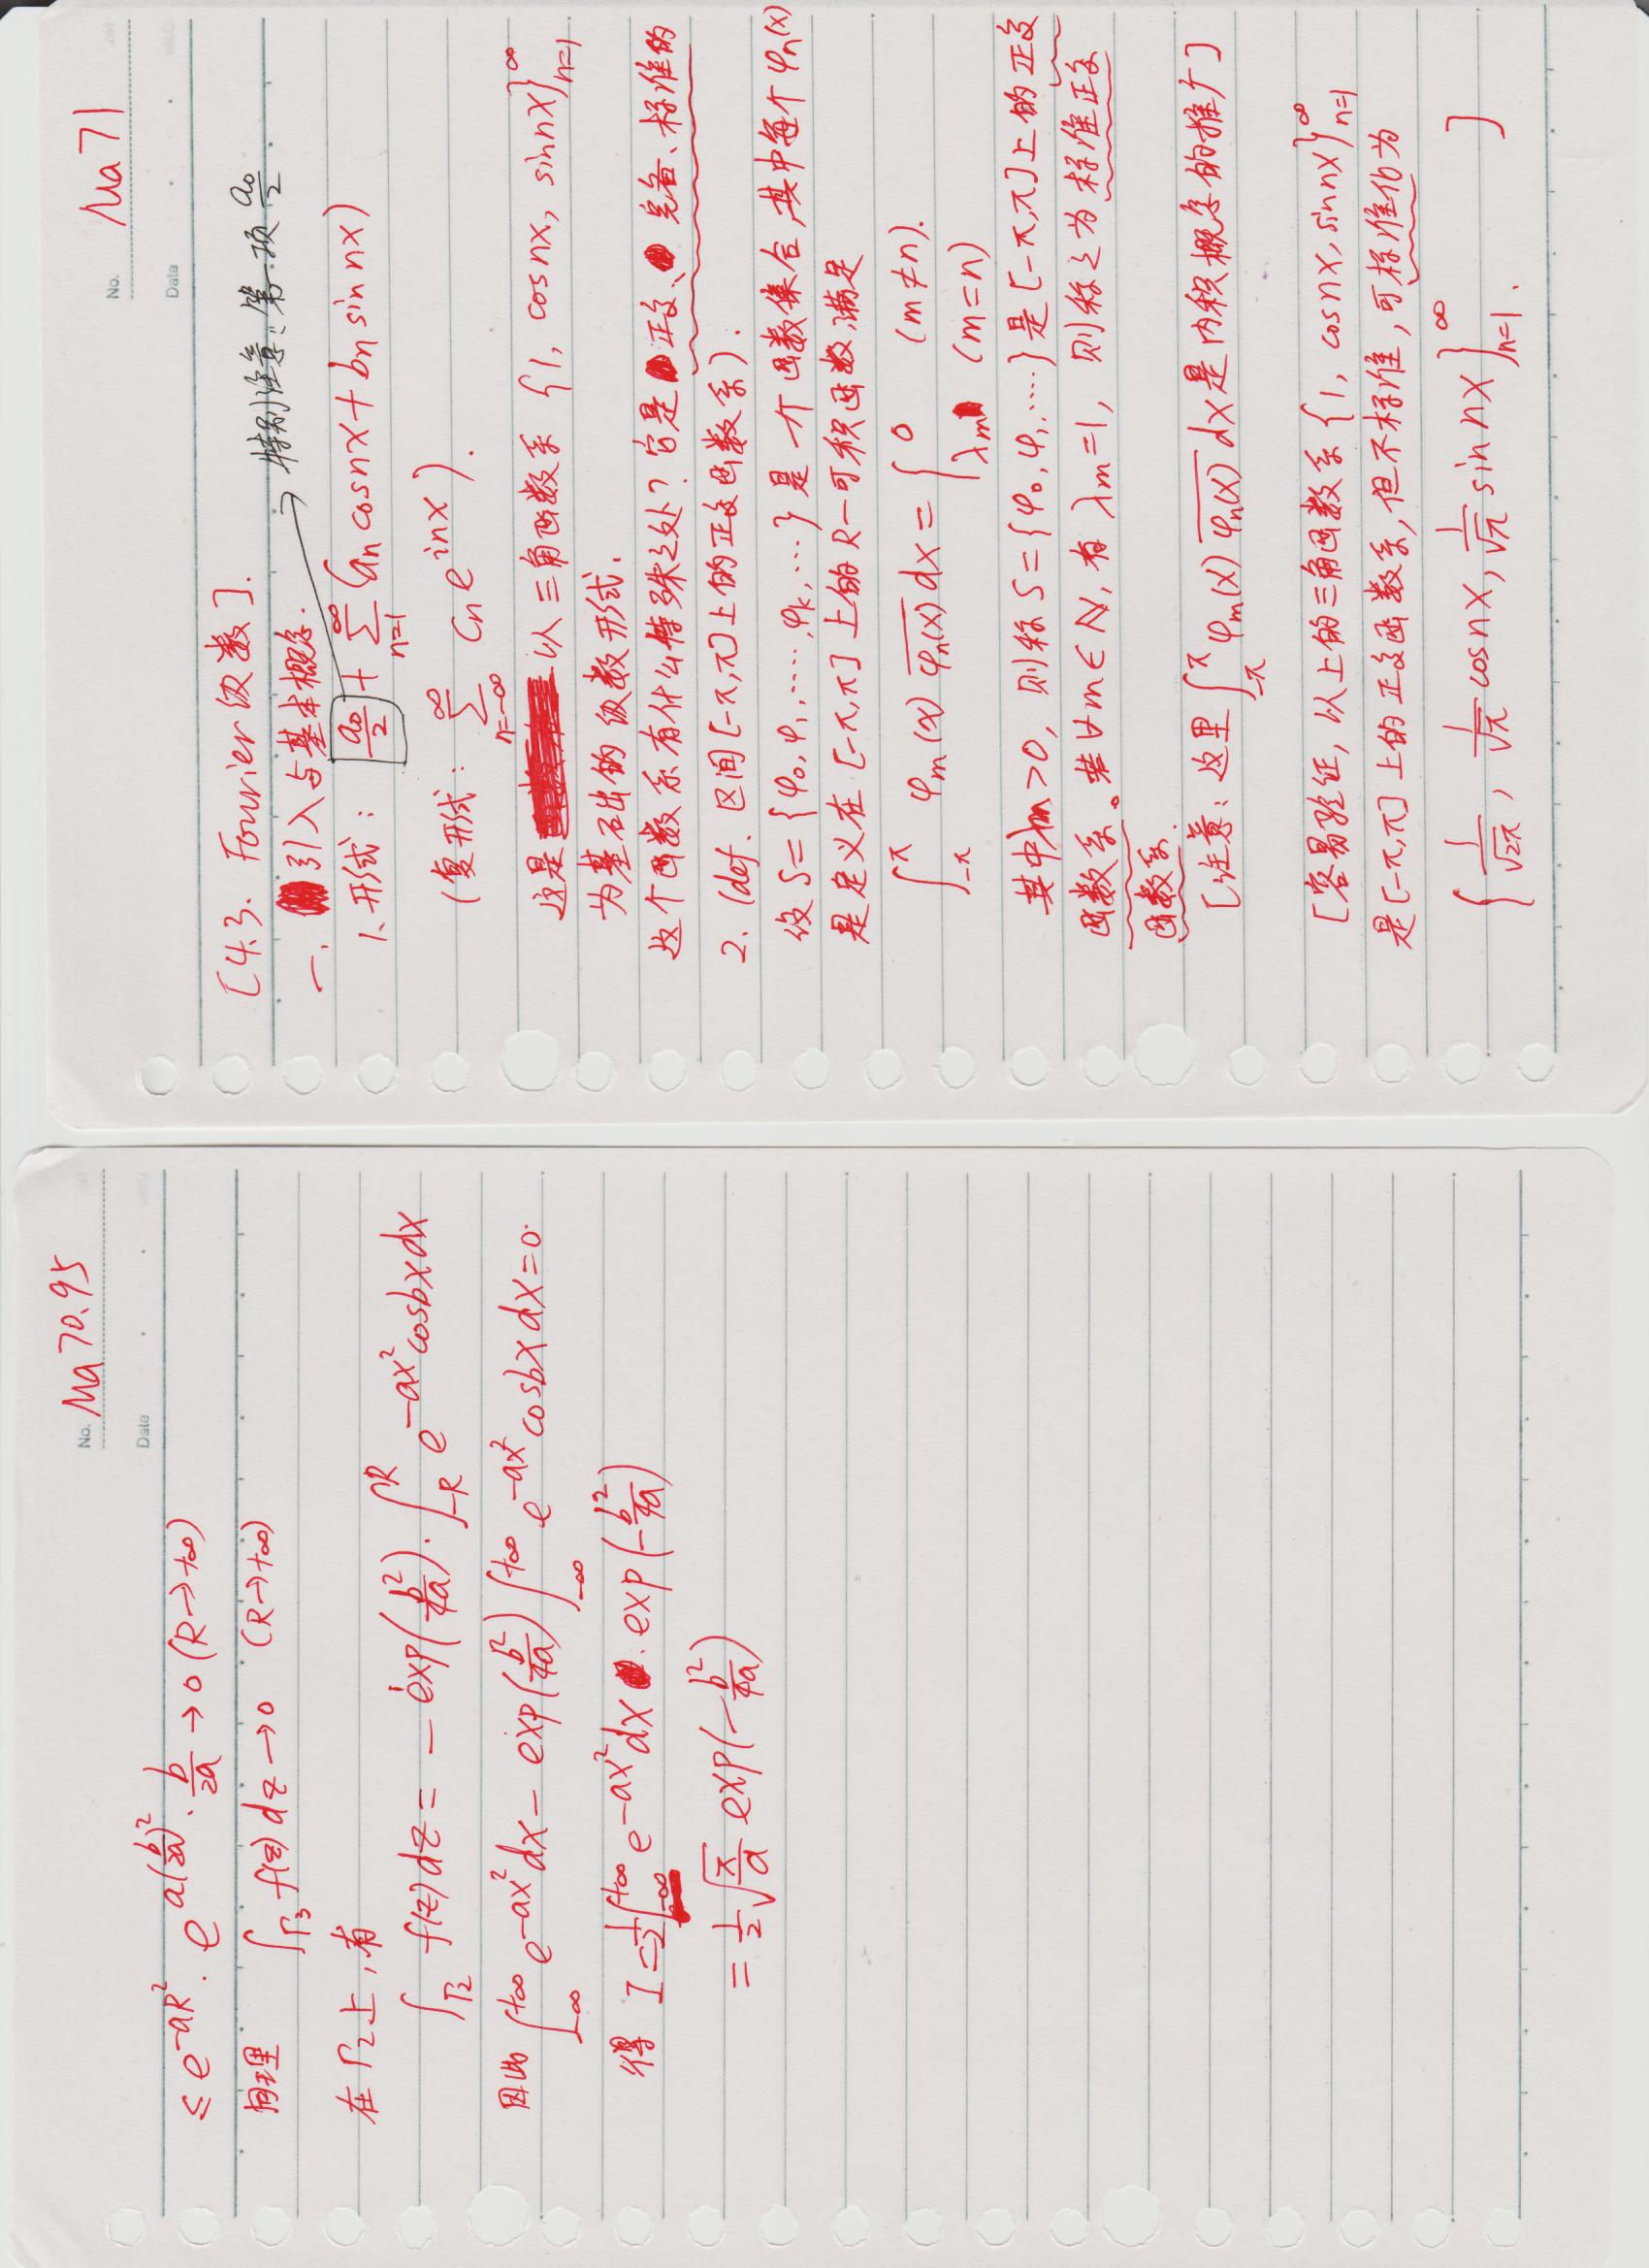 No. Ma 70.95
Date
≤ e^{-aR²} · e^{a(b/2a)²} · b/2a → 0 (R→+∞)
同理 ∫_{Γ₃} f(z) dz → 0 (R→+∞)
在 Γ₂ 上, 有
∫_{Γ₂} f(z) dz = - exp(b²/4a) · ∫_{-R}^{R} e^{-ax²} cosbx dx
因此 ∫_{-∞}^{+∞} e^{-ax²} dx - exp(b²/4a) ∫_{-∞}^{+∞} e^{-ax²} cosbx dx = 0.
得 I = 1/2 ∫_{-∞}^{+∞} e^{-ax²} dx · exp(-b²/4a)
= 1/2 √(π/a) exp(-b²/4a)
No. Ma 71
Date
[4.3. Fourier 级数].
特别注意: 第一项 a₀/2
一. 引入与基本概念.
1. 形式: a₀/2 + ∑_{n=1}^{∞} (aₙ cosnx + bₙ sin nx)
(复形式: ∑_{n=-∞}^{∞} cₙ e^{inx}).
这是 以三角函数系 {1, cosnx, sinnx}_{n=1}^{∞}.
为基础的级数形式.
这个函数系有什么特殊之处? 它是正交、完备、标准的
2. (def. 区间[-π,π]上的正交函数系).
设 S = {φ₀, φ₁, ····, φₖ, ···} 是一个函数集合,其中每个 φₙ(x)
是定义在 [-π,π] 上的 R-可积函数,满足
∫_{-π}^{π} φₘ(x) \overline{φₙ(x)} dx = { 0 (m≠n).
λₘ (m=n)
其中λₘ>0, 则称 S={φ₀, φ₁, ····} 是[-π,π]上的正交
函数系。若∀m∈N, 有 λₘ=1, 则称之为标准正交
函数系.
[注意: 这里 ∫_{-π}^{π} φₘ(x) \overline{φₙ(x)} dx 是内积概念的推广]
[容易验证, 以上的三角函数系 {1, cosnx, sinnx}_{n=1}^{∞}
是[-π,π]上的正交函数系, 但不标准, 可标准化为
{1/√2π, 1/√π cosnx, 1/√π sin nx}_{n=1}^{∞}. ]